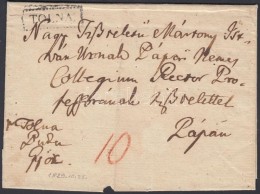 TOLNA
Nagy Tiszteletű Mártony Ist-
ván Urnak Pápai Nemes
Collegium Rector Pro-
fessorának tisztelettel
Pápán
Tolna
Buda
Győr
10